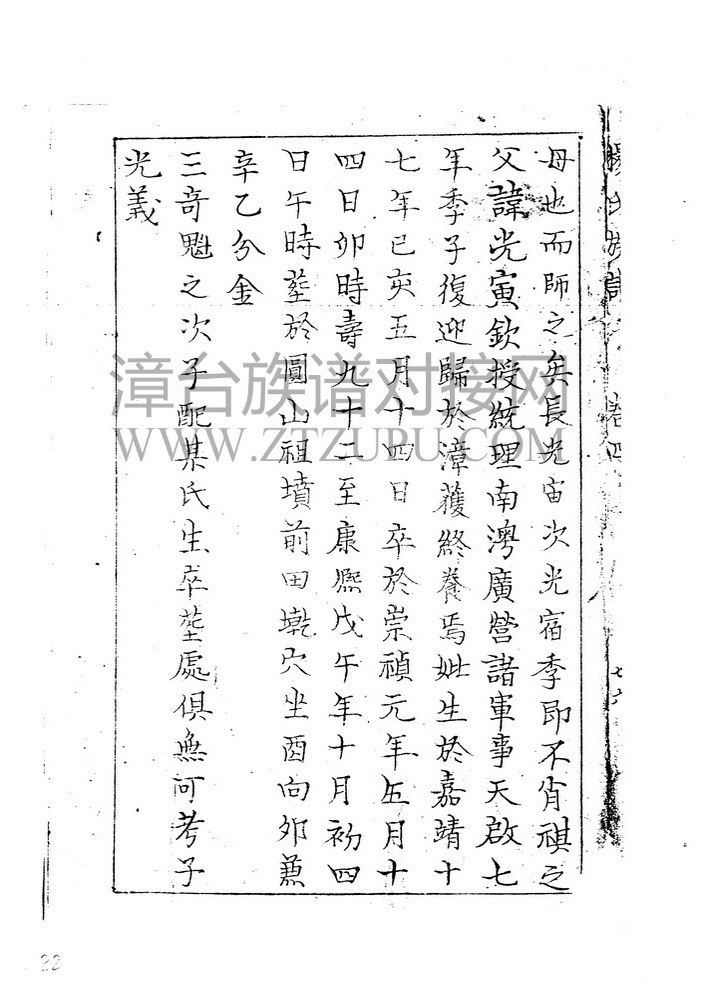 母也而師之矣長光宙次光宿季即不肖祺之
父諱光寅欽授統理南灣廣營諸軍事天啟七
年季子復迎歸於漳獲終養焉妣生於嘉靖十
七年己亥五月十四日卒於崇禎元年五月十
四日卯時壽九十二至康熙戊午年十月初四
日午時塟於圓山祖墳前田墘穴坐酉向卯兼
辛乙分金
三奇魁之次子配某氏生卒塟處俱無可考子
光義
卷四
七六
漳台族谱对接网
WWW.ZTZUPU.COM
22